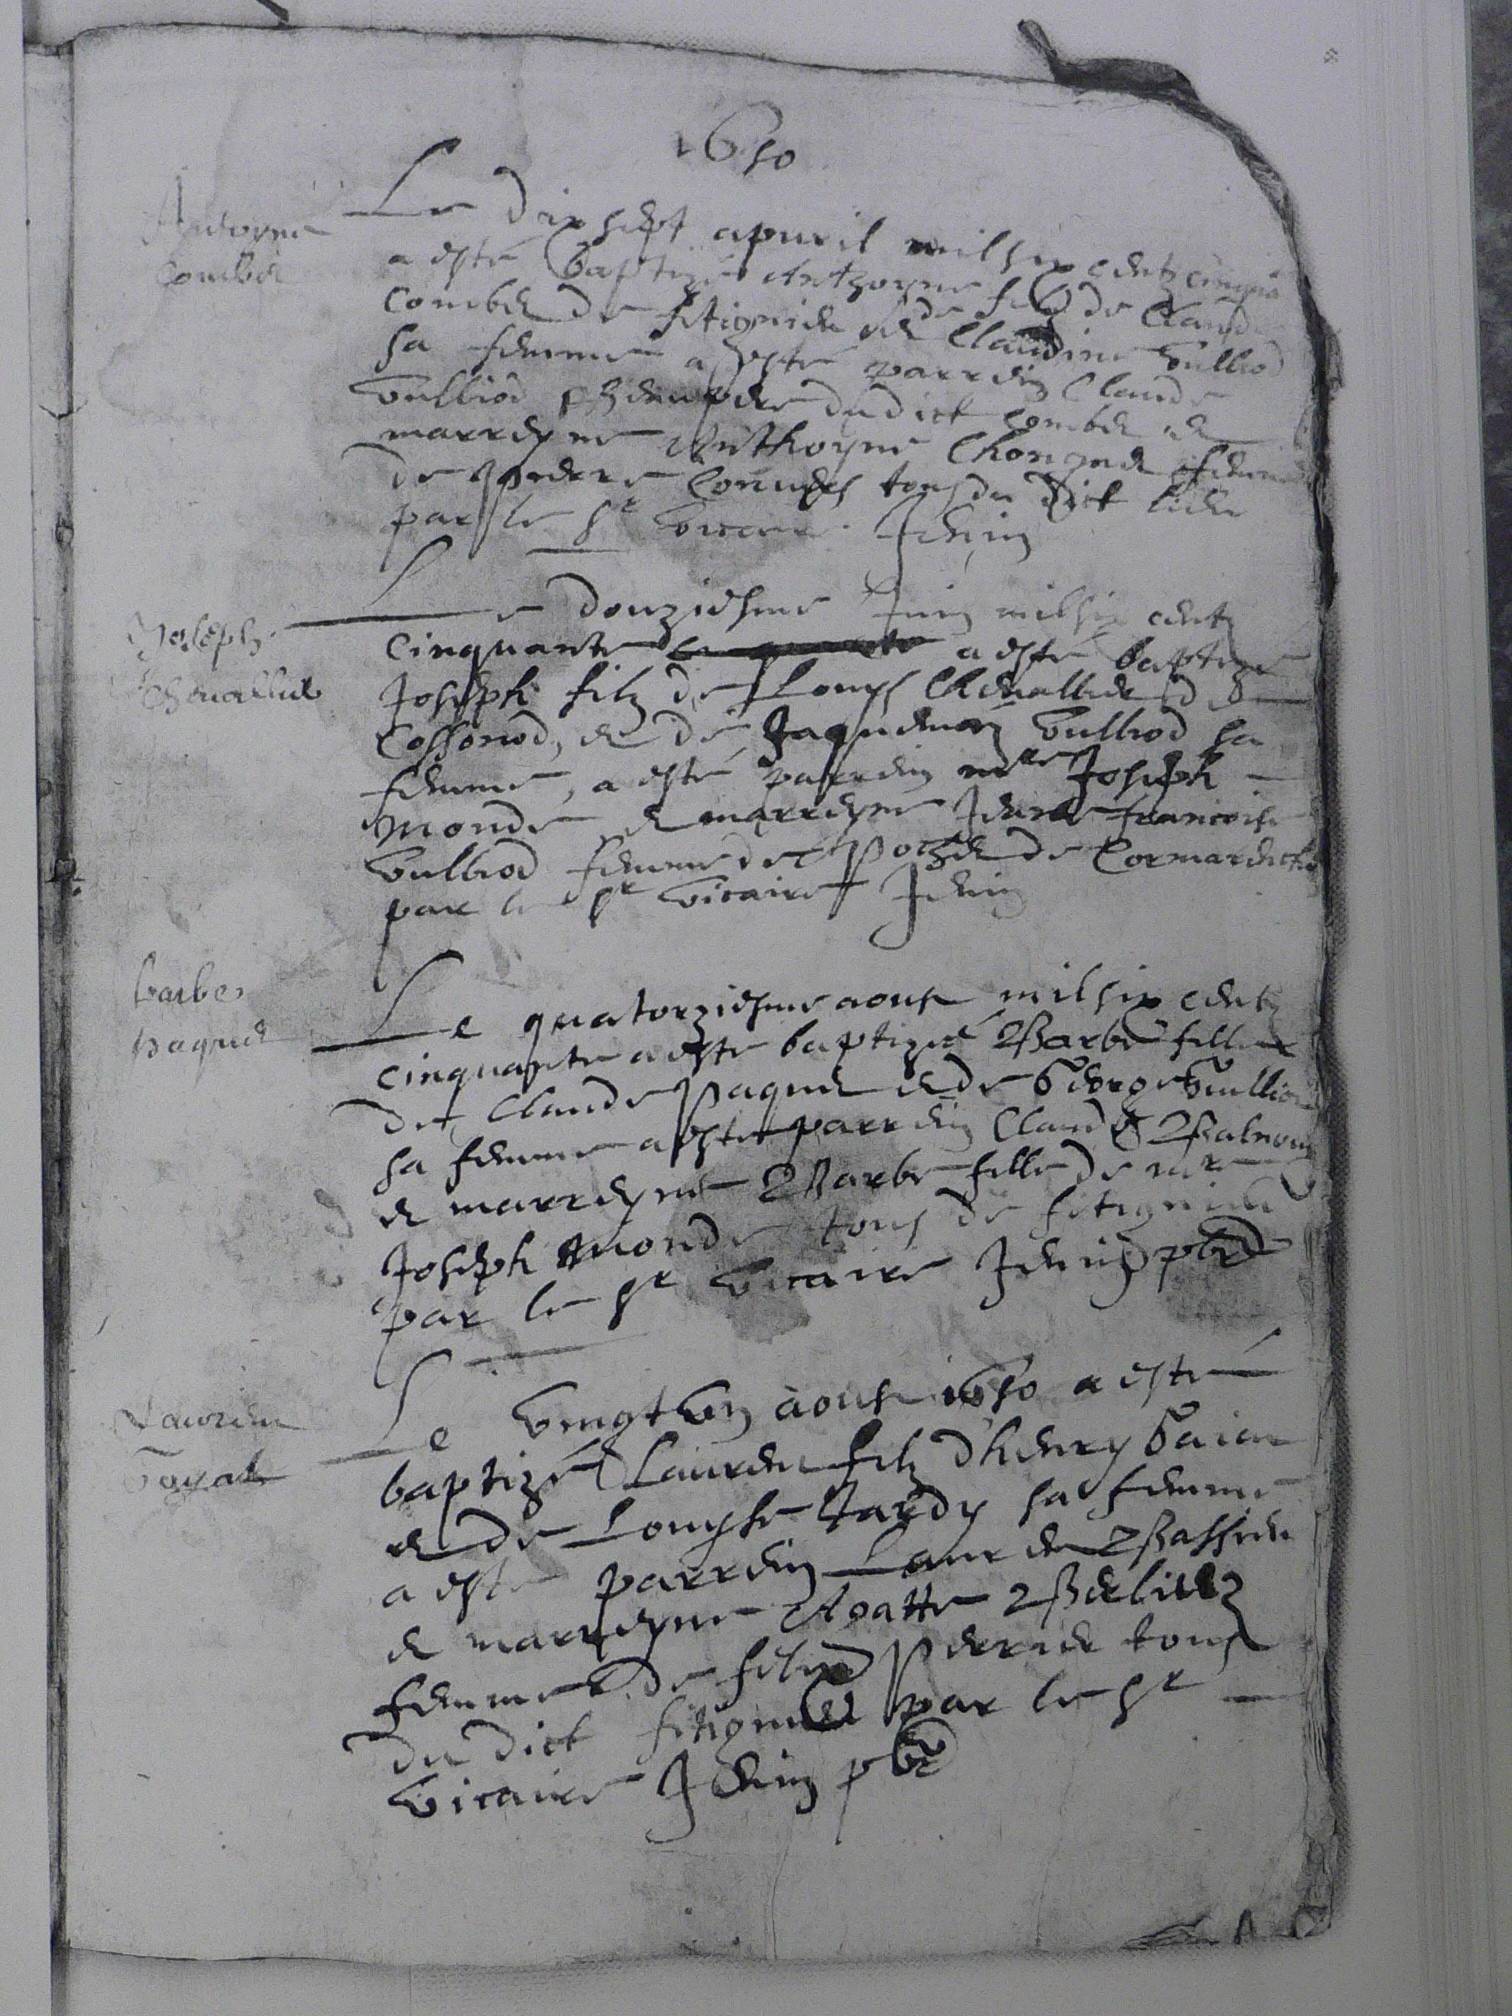 1650
Anthoyne
Combet
Le dix sept apvril mil six centz cinqua
a esté baptizé Anthoyne filz de Claude
Combet de fetignieu et de Claudine Vulliod
sa femme a esté parrein Claude
Vulliod beaupere dudict Combet et
marreyne Anthoyne femme
de tous du dict lieu
par le sr vicaire Jenin
Joseph
Chevallier
Le douziesme Juin mil six centz
cinquante a esté baptizé
Joseph filz de Louys Chevallier de
Cossonod, et de Jaquemaz Vulliod sa
femme, a esté parrein mtre Joseph
Monde et marreyne Jeane francoise
Vulliod femme de Pochet de Cormaranche
par le sr vicaire Jenin
barbe
paquet
Le quatorziesme aoust mil six centz
cinquante a esté baptizée Barbe fille
de Claude Paquet et de George Vulliod
sa femme a esté parrein Claude
et marreyne Barbe fille de mre
Joseph Monde tous de fetignieu
par le sr vicaire Jenin pbre
Lauren
Goyat
Le vingt un aoust 1650 a esté
baptizé Lauren filz d'henry Baian
et de Louyse Jardy sa femme
a esté parrein Lauren Bassieu
et marreyne Agatte Berliet
femme de Perrier tous
du dict fetignieu par le sr
vicaire Jenin pbre